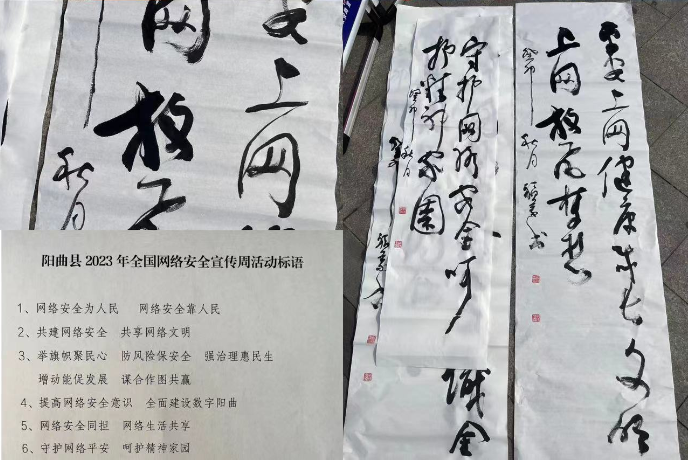 上网
放飞
秋月
阳曲县2023年全国网络安全宣传周活动标语
1、网络安全为人民 网络安全靠人民
2、共建网络安全 共享网络文明
3、举旗帜聚民心 防风险保安全 强治理惠民生
增动能促发展 谋合作图共赢
4、提高网络安全意识 全面建设数字阳曲
5、网络安全同担 网络生活共享
6、守护网络平安 呵护精神家园
守护网络安全呵
护精神家园
癸卯秋月
城金
文上网健康成长文明
上网放飞梦想
癸卯秋月